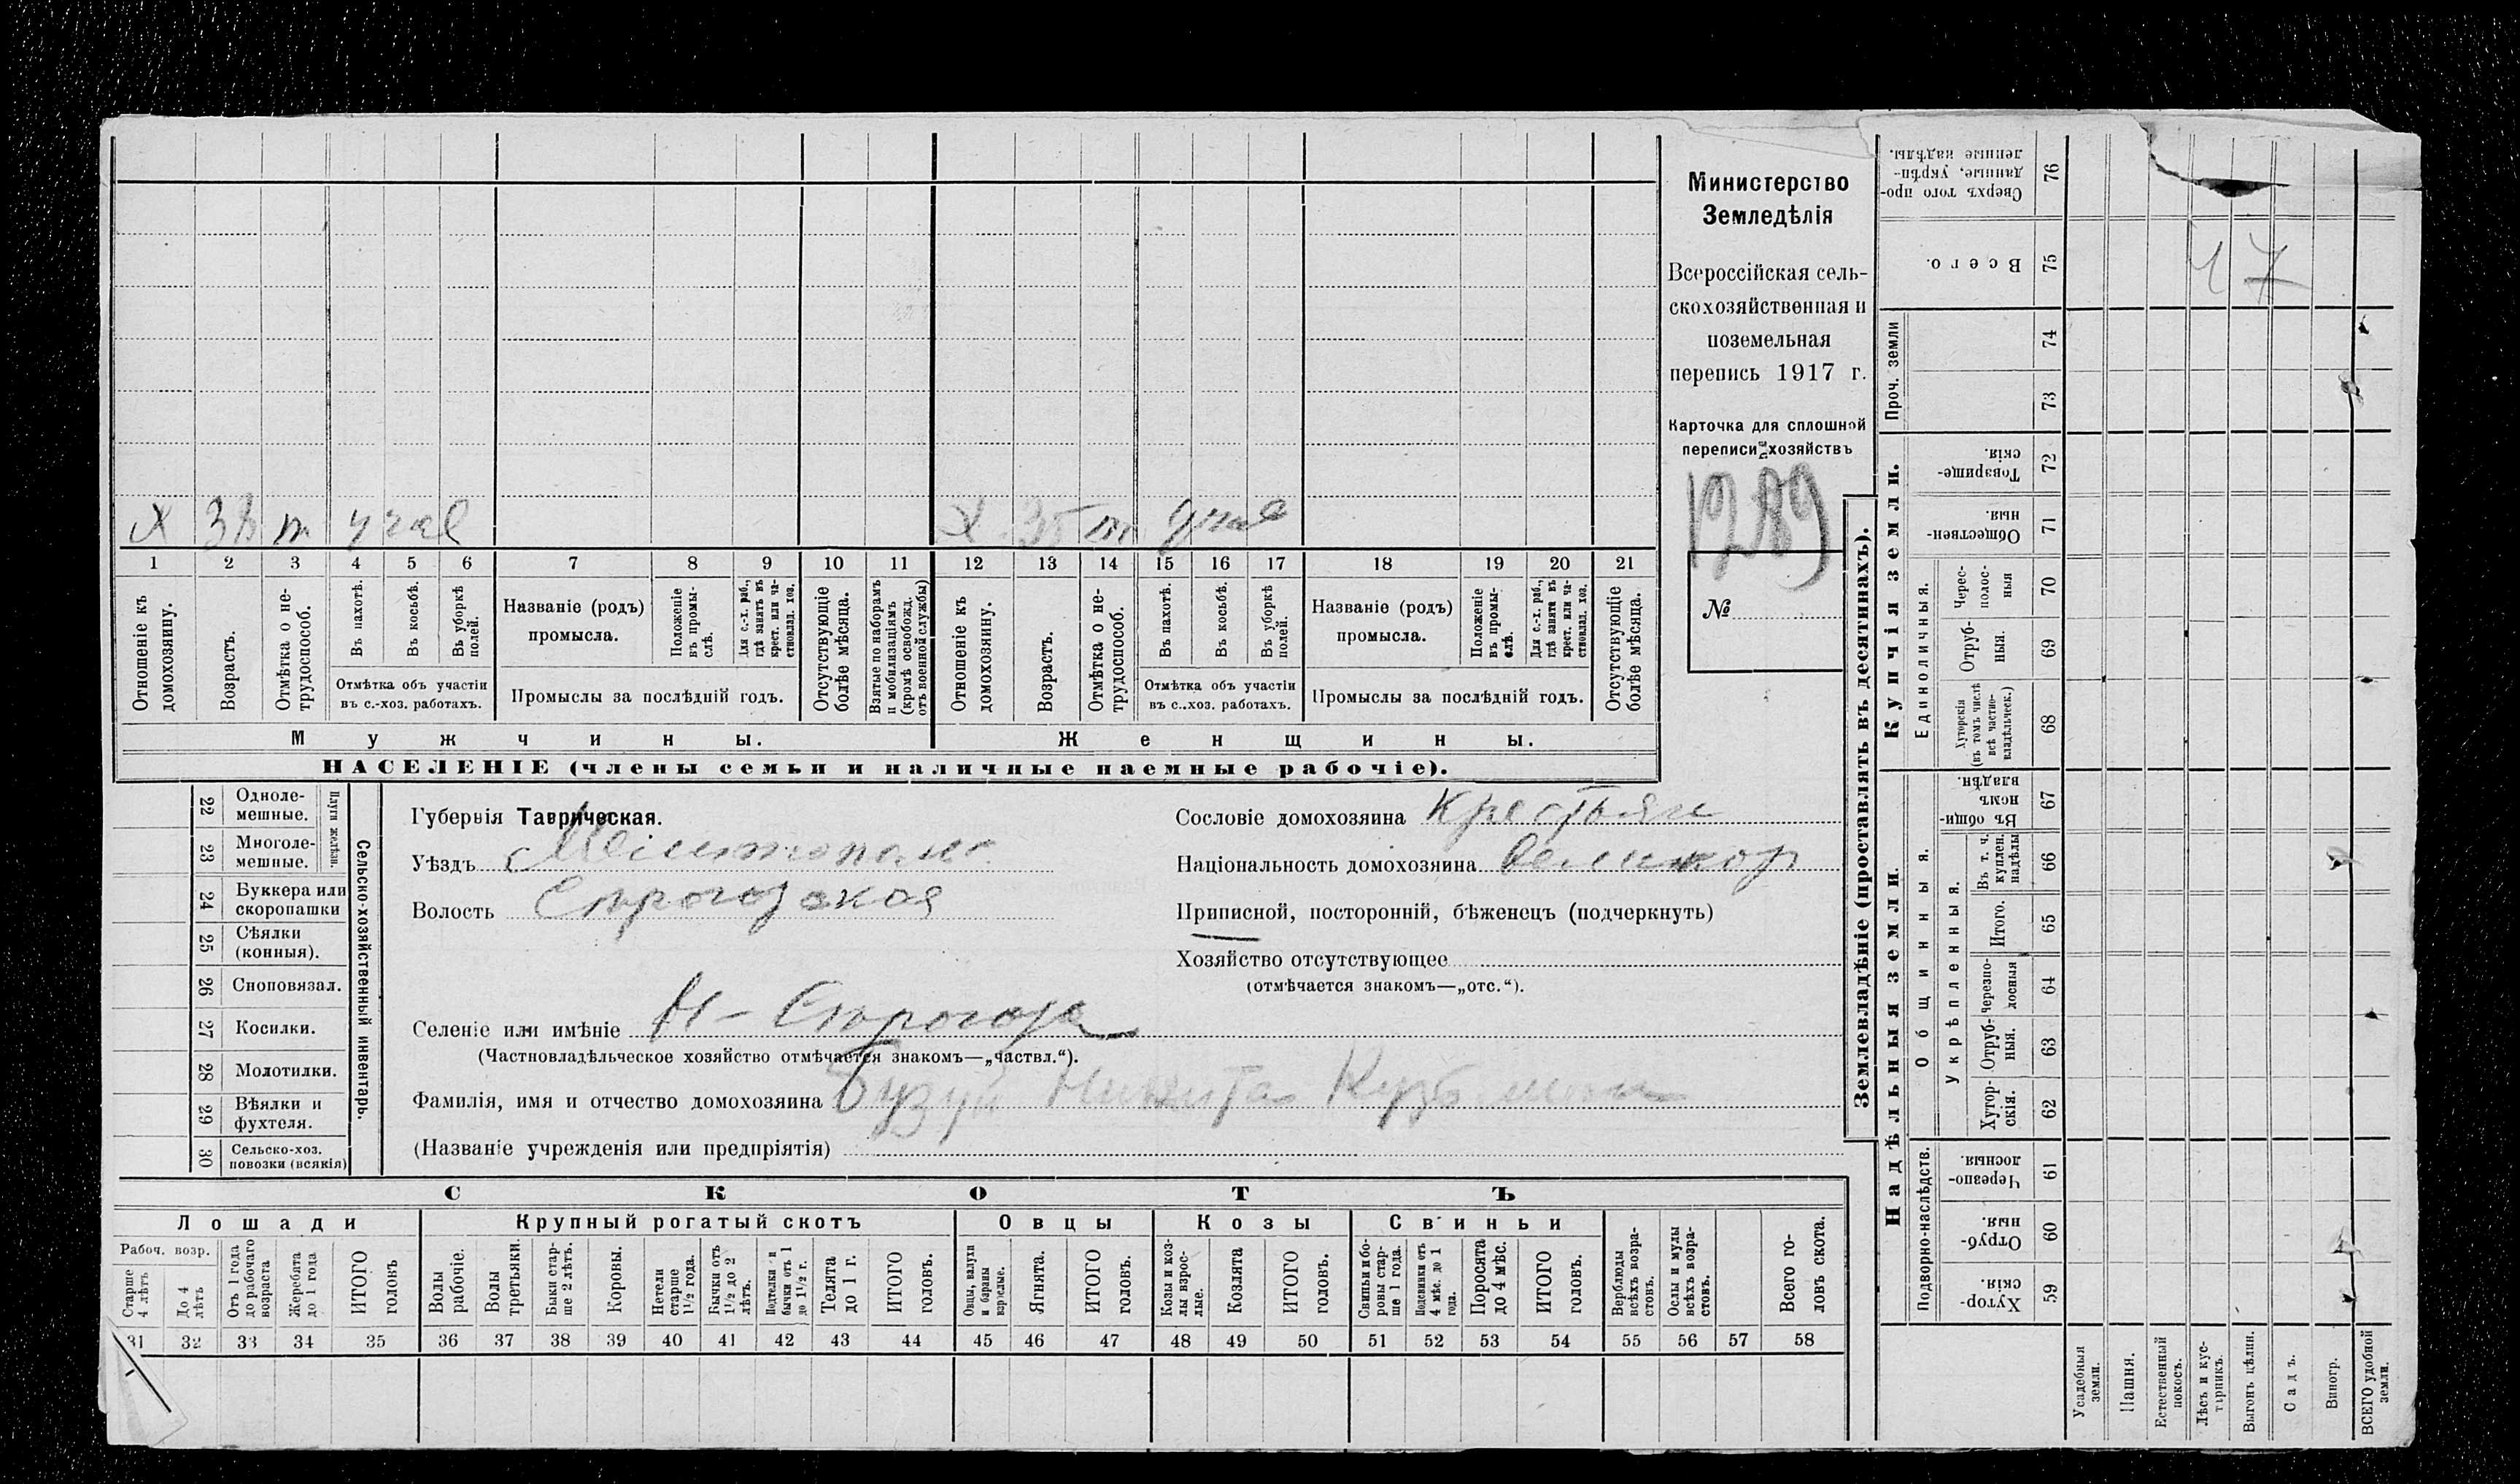 Министерство
Земледѣлія
Всероссійская сель-
скохозяйственная и
поземельная
перепись 1917 г.
Карточка для сплошной
переписи хозяйствъ
1289
№
х 38 т учав
х 35 т учав
1 2 3 4 5 6 7 8 9 10 11 12 13 14 15 16 17 18 19 20 21
Отношеніе къ домохозяину.
Возрастъ.
Отмѣтка о не-трудоспособ.
Въ пахотѣ.
Въ косьбѣ.
Въ уборкѣ полей.
Отмѣтка объ участіи
въ с.-хоз. работахъ.
Названіе (родъ)
промысла.
Положеніе въ промы-слѣ.
Для с.-х. раб., гдѣ занятъ въ крест. или ча-стновлад. хоз.
Промыслы за послѣдній годъ.
Отсутствующіе болѣе мѣсяца.
Взятые по наборамъ и мобилизаціямъ (кромѣ освобожд. отъ военной службы)
Отношеніе къ домохозяину.
Возрастъ.
Отмѣтка о не-трудоспособ.
Въ пахотѣ.
Въ косьбѣ.
Въ уборкѣ полей.
Отмѣтка объ участіи
въ с..хоз. работахъ.
Названіе (родъ)
промысла.
Положеніе въ промы-слѣ.
Для с.-х. раб., гдѣ занята въ крест. или ча-стновлад. хоз.
Промыслы за послѣдній годъ.
Отсутствующіе болѣе мѣсяца.
Мужчины.
Женщины.
НАСЕЛЕНІЕ (члены семьи и наличные наемные рабочіе).
22 Одноле-мешные.
23 Многоле-мешные.
Плуги желѣзн.
24 Буккера или скоропашки
25 Сѣялки (конныя).
26 Сноповязал.
27 Косилки.
28 Молотилки.
29 Вѣялки и фухтеля.
30 Сельско-хоз. повозки (всякія)
Сельско-хозяйственный инвентарь.
Губернія Таврическая.
Уѣздъ Мелитополь
Волость Серогозская
Селеніе или имѣніе Н-Серогозы
(Частновладѣльческое хозяйство отмѣчается знакомъ—„частвл.“).
Фамилія, имя и отчество домохозяина Бузун Никита Кузьмич
(Названіе учрежденія или предпріятія)
Сословіе домохозяина Крестьян
Національность домохозяина великор
Приписной, посторонній, бѣженецъ (подчеркнуть)
Хозяйство отсутствующее
(отмѣчается знакомъ—„отс.“).
СКОТЪ
Лошади
Крупный рогатый скотъ
Овцы
Козы
Свиньи
Рабоч. возр.
Старше 4 лѣтъ
До 4 лѣтъ
Отъ 1 года до рабочаго возраста
Жеребята до 1 года
ИТОГО головъ
Волы рабочіе.
Волы третьяки.
Быки стар-ше 2 лѣтъ.
Коровы.
Нетели старше 1½ года.
Бычки отъ 1½ до 2 лѣтъ.
Подтелки и бычки отъ 1 до 1½ г.
Телята до 1 г.
ИТОГО головъ.
Овцы, валухи и бараны взрослые.
Ягнята.
ИТОГО головъ.
Козы и коз-лы взрос-лые.
Козлята
ИТОГО головъ.
Свиньи и бо-ровы стар-ше 1 года.
Подсвинки отъ 4 мѣс. до 1 года.
Поросята до 4 мѣс.
ИТОГО головъ.
Верблюды всѣхъ возра-стовъ.
Ослы и мулы всѣхъ возра-стовъ.
Всего го-ловъ скота.
31 32 33 34 35 36 37 38 39 40 41 42 43 44 45 46 47 48 49 50 51 52 53 54 55 56 57 58
Землевладѣніе (проставлять въ десятинахъ).
Сверхъ того про-данные, укрѣп-ленные надѣлы. 76
Всего. 75
47
Проч. земли
74
73
Купчія земли.
Товарище-скія. 72
Обществен-ныя. 71
Единоличныя.
Черес-полос-ныя 70
Отруб-ныя. 69
Хуторскія (въ томъ числѣ всѣ частно-владѣльческ.) 68
Надѣльныя земли.
Въ общи-номъ владѣн. 67
Общинныя.
Укрѣпленныя.
Въ т. ч. куплен. надѣлы 66
Итого. 65
черезпо-лосныя 64
Отруб-ныя. 63
Хутор-скія. 62
Подворно-наслѣдств.
Черезпо-лосныя. 61
Отруб-ныя. 60
Хутор-скія. 59
Усадебныя земли.
Пашня.
Естественный покосъ.
Лѣсъ и кус-тарникъ.
Выгонъ цѣлин.
Садъ.
Виногр.
ВСЕГО удобной земли.